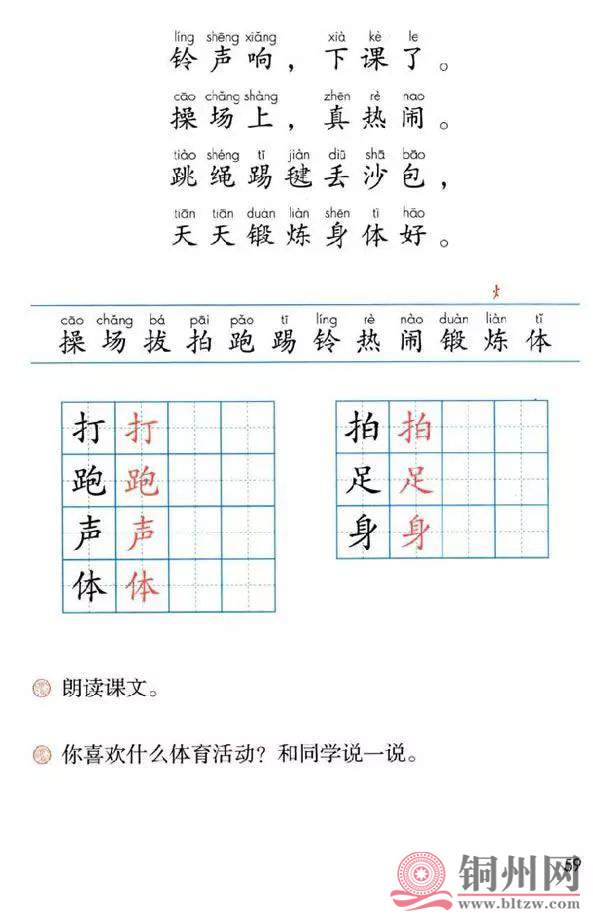 líng shēng xiǎng xià kè le
铃声响，下课了。
cāo chǎng shàng zhēn rè nao
操场上，真热闹。
tiào shéng tī jiàn diū shā bāo
跳绳踢毽丢沙包，
tiān tiān duàn liàn shēn tǐ hǎo
天天锻炼身体好。
火
cāo chǎng bá pāi pǎo tī líng rè nào duàn liàn tǐ
操 场 拔 拍 跑 踢 铃 热 闹 锻 炼 体
打 打 拍 拍
跑 跑 足 足
声 声 身 身
体 体
朗读课文。
你喜欢什么体育活动？和同学说一说。
59
铜州网
www.bltzw.com